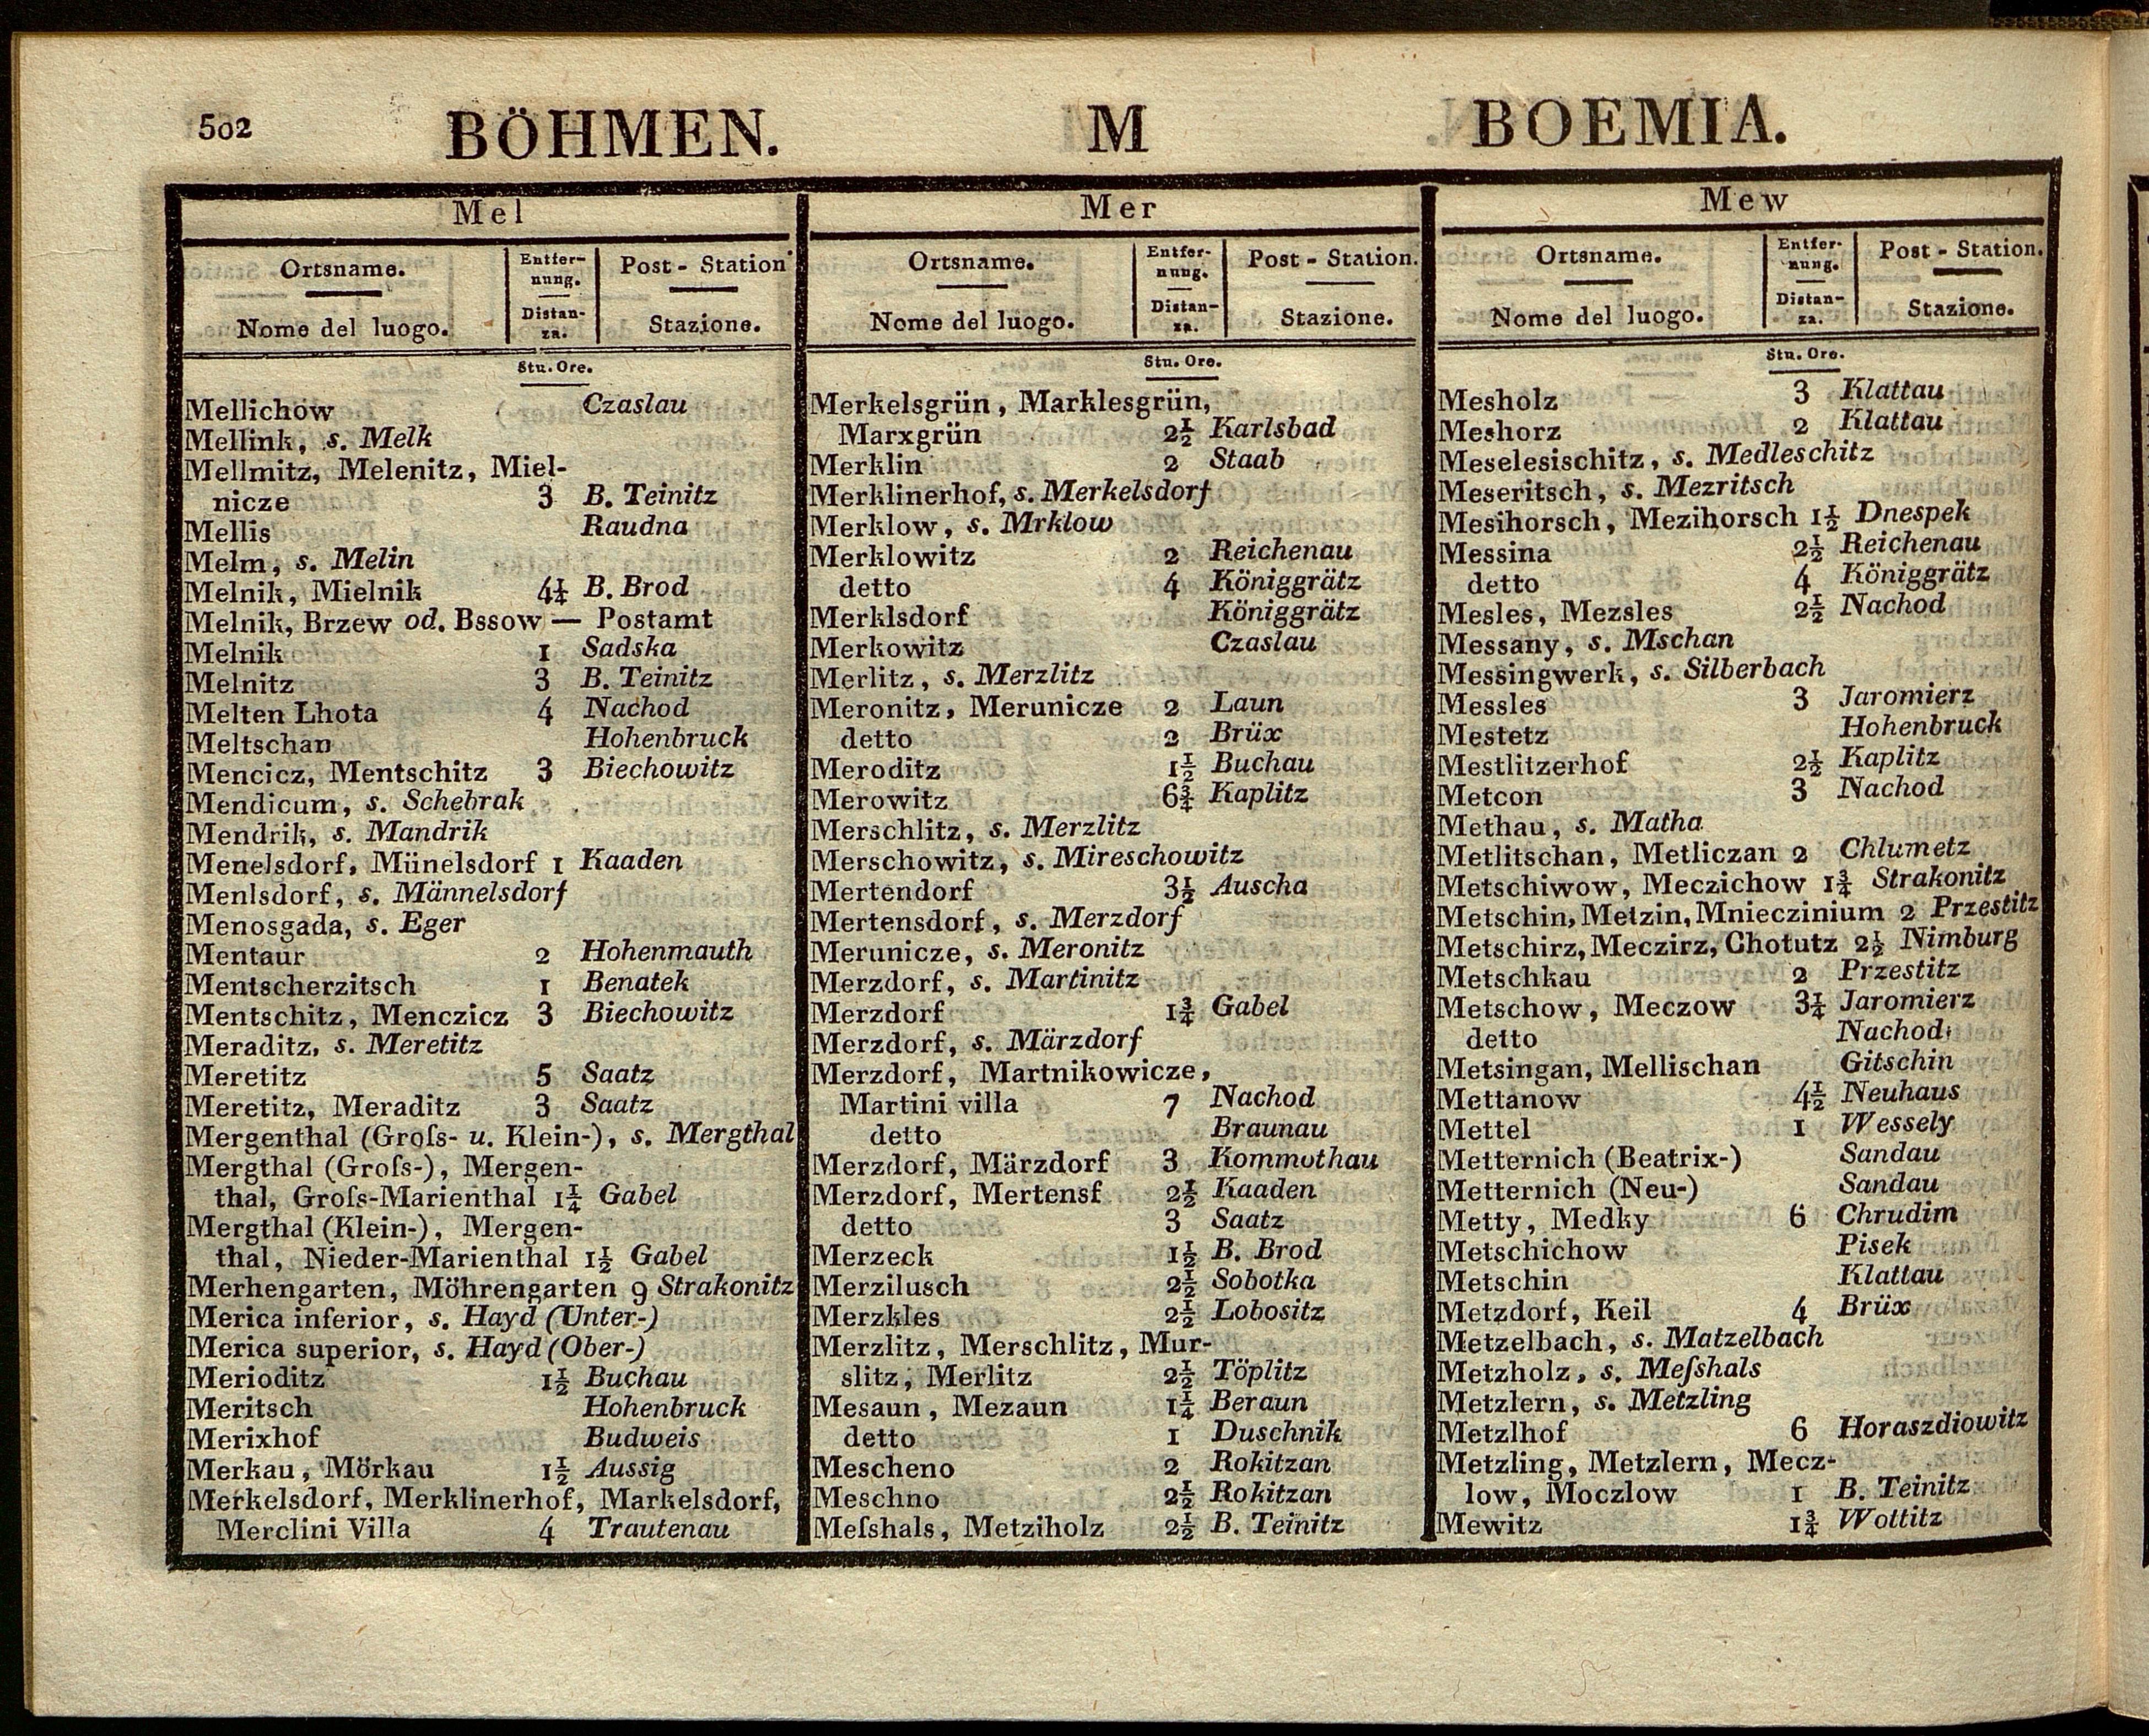 502 BÖHMEN. M BOEMIA.
Mel
Ortsname. Entfer- Post - Station
nung.
Distan-
Nome del luogo. za. Stazione.
Stu. Ore.
Mellichow Czaslau
Mellink, s. Melk
Mellmitz, Melenitz, Miel-
nicze 3 B. Teinitz
Mellis Raudna
Melm, s. Melin
Melnik, Mielnik 4¼ B. Brod
Melnik, Brzew od. Bssow — Postamt
Melnik 1 Sadska
Melnitz 3 B. Teinitz
Melten Lhota 4 Nachod
Meltschan Hohenbruck
Mencicz, Mentschitz 3 Biechowitz
Mendicum, s. Schebrak
Mendrik, s. Mandrik
Menelsdorf, Münelsdorf 1 Kaaden
Menlsdorf, s. Männelsdorf
Menosgada, s. Eger
Mentaur 2 Hohenmauth
Mentscherzitsch 1 Benatek
Mentschitz, Menczicz 3 Biechowitz
Meraditz, s. Meretitz
Meretitz 5 Saatz
Meretitz, Meraditz 3 Saatz
Mergenthal (Groſs- u. Klein-), s. Mergthal
Mergthal (Groſs-), Mergen-
thal, Groſs-Marienthal 1¼ Gabel
Mergthal (Klein-), Mergen-
thal, Nieder-Marienthal 1½ Gabel
Merhengarten, Möhrengarten 9 Strakonitz
Merica inferior, s. Hayd (Unter-)
Merica superior, s. Hayd (Ober-)
Merioditz 1½ Buchau
Meritsch Hohenbruck
Merixhof Budweis
Merkau, Mörkau 1½ Aussig
Merkelsdorf, Merklinerhof, Markelsdorf,
Merclini Villa 4 Trautenau
Mer
Ortsname. Entfer- Post - Station.
nung.
Distan-
Nome del luogo. za. Stazione.
Stu. Ore.
Merkelsgrün, Marklesgrün,
Marxgrün 2½ Karlsbad
Merklin 2 Staab
Merklinerhof, s. Merkelsdorf
Merklow, s. Mrklow
Merklowitz 2 Reichenau
detto 4 Königgrätz
Merklsdorf Königgrätz
Merkowitz Czaslau
Merlitz, s. Merzlitz
Meronitz, Merunicze 2 Laun
detto 2 Brüx
Meroditz 1½ Buchau
Merowitz 6¾ Kaplitz
Merschlitz, s. Merzlitz
Merschowitz, s. Mireschowitz
Mertendorf 3½ Auscha
Mertensdorf, s. Merzdorf
Merunicze, s. Meronitz
Merzdorf, s. Martinitz
Merzdorf 1¾ Gabel
Merzdorf, s. Märzdorf
Merzdorf, Martnikowicze,
Martini villa 7 Nachod
detto Braunau
Merzdorf, Märzdorf 3 Kommothau
Merzdorf, Mertensf 2½ Kaaden
detto 3 Saatz
Merzeck 1½ B. Brod
Merzilusch 2½ Sobotka
Merzkles 2½ Lobositz
Merzlitz, Merschlitz, Mur-
slitz, Merlitz 2½ Töplitz
Mesaun, Mezaun 1¼ Beraun
detto 1 Duschnik
Mescheno 2 Rokitzan
Meschno 2½ Rokitzan
Meſshals, Metziholz 2½ B. Teinitz
Mew
Ortsname. Entfer- Post - Station.
nung.
Distan-
Nome del luogo. za. Stazione.
Stu. Ore.
Mesholz 3 Klattau
Meshorz 2 Klattau
Meselesischitz, s. Medleschitz
Meseritsch, s. Mezritsch
Mesihorsch, Mezihorsch 1½ Dnespek
Messina 2½ Reichenau
detto 4 Königgrätz
Mesles, Mezsles 2½ Nachod
Messany, s. Mschan
Messingwerk, s. Silberbach
Messles 3 Jaromierz
Mestetz Hohenbruck
Mestlitzerhof 2½ Kaplitz
Metcon 3 Nachod
Methau, s. Matha
Metlitschan, Metliczan 2 Chlumetz
Metschiwow, Meczichow 1¾ Strakonitz
Metschin, Metzin, Mnieczinium 2 Przestitz
Metschirz, Meczirz, Chotutz 2½ Nimburg
Metschkau 2 Przestitz
Metschow, Meczow 3¼ Jaromierz
detto Nachod
Metsingan, Mellischan Gitschin
Mettanow 4½ Neuhaus
Mettel 1 Wessely
Metternich (Beatrix-) Sandau
Metternich (Neu-) Sandau
Metty, Medky 6 Chrudim
Metschichow Pisek
Metschin Klattau
Metzdorf, Keil 4 Brüx
Metzelbach, s. Matzelbach
Metzholz, s. Meſshals
Metzlern, s. Metzling
Metzlhof 6 Horaszdiowitz
Metzling, Metzlern, Mecz-
low, Moczlow 1 B. Teinitz
Mewitz 1¾ Wottitz